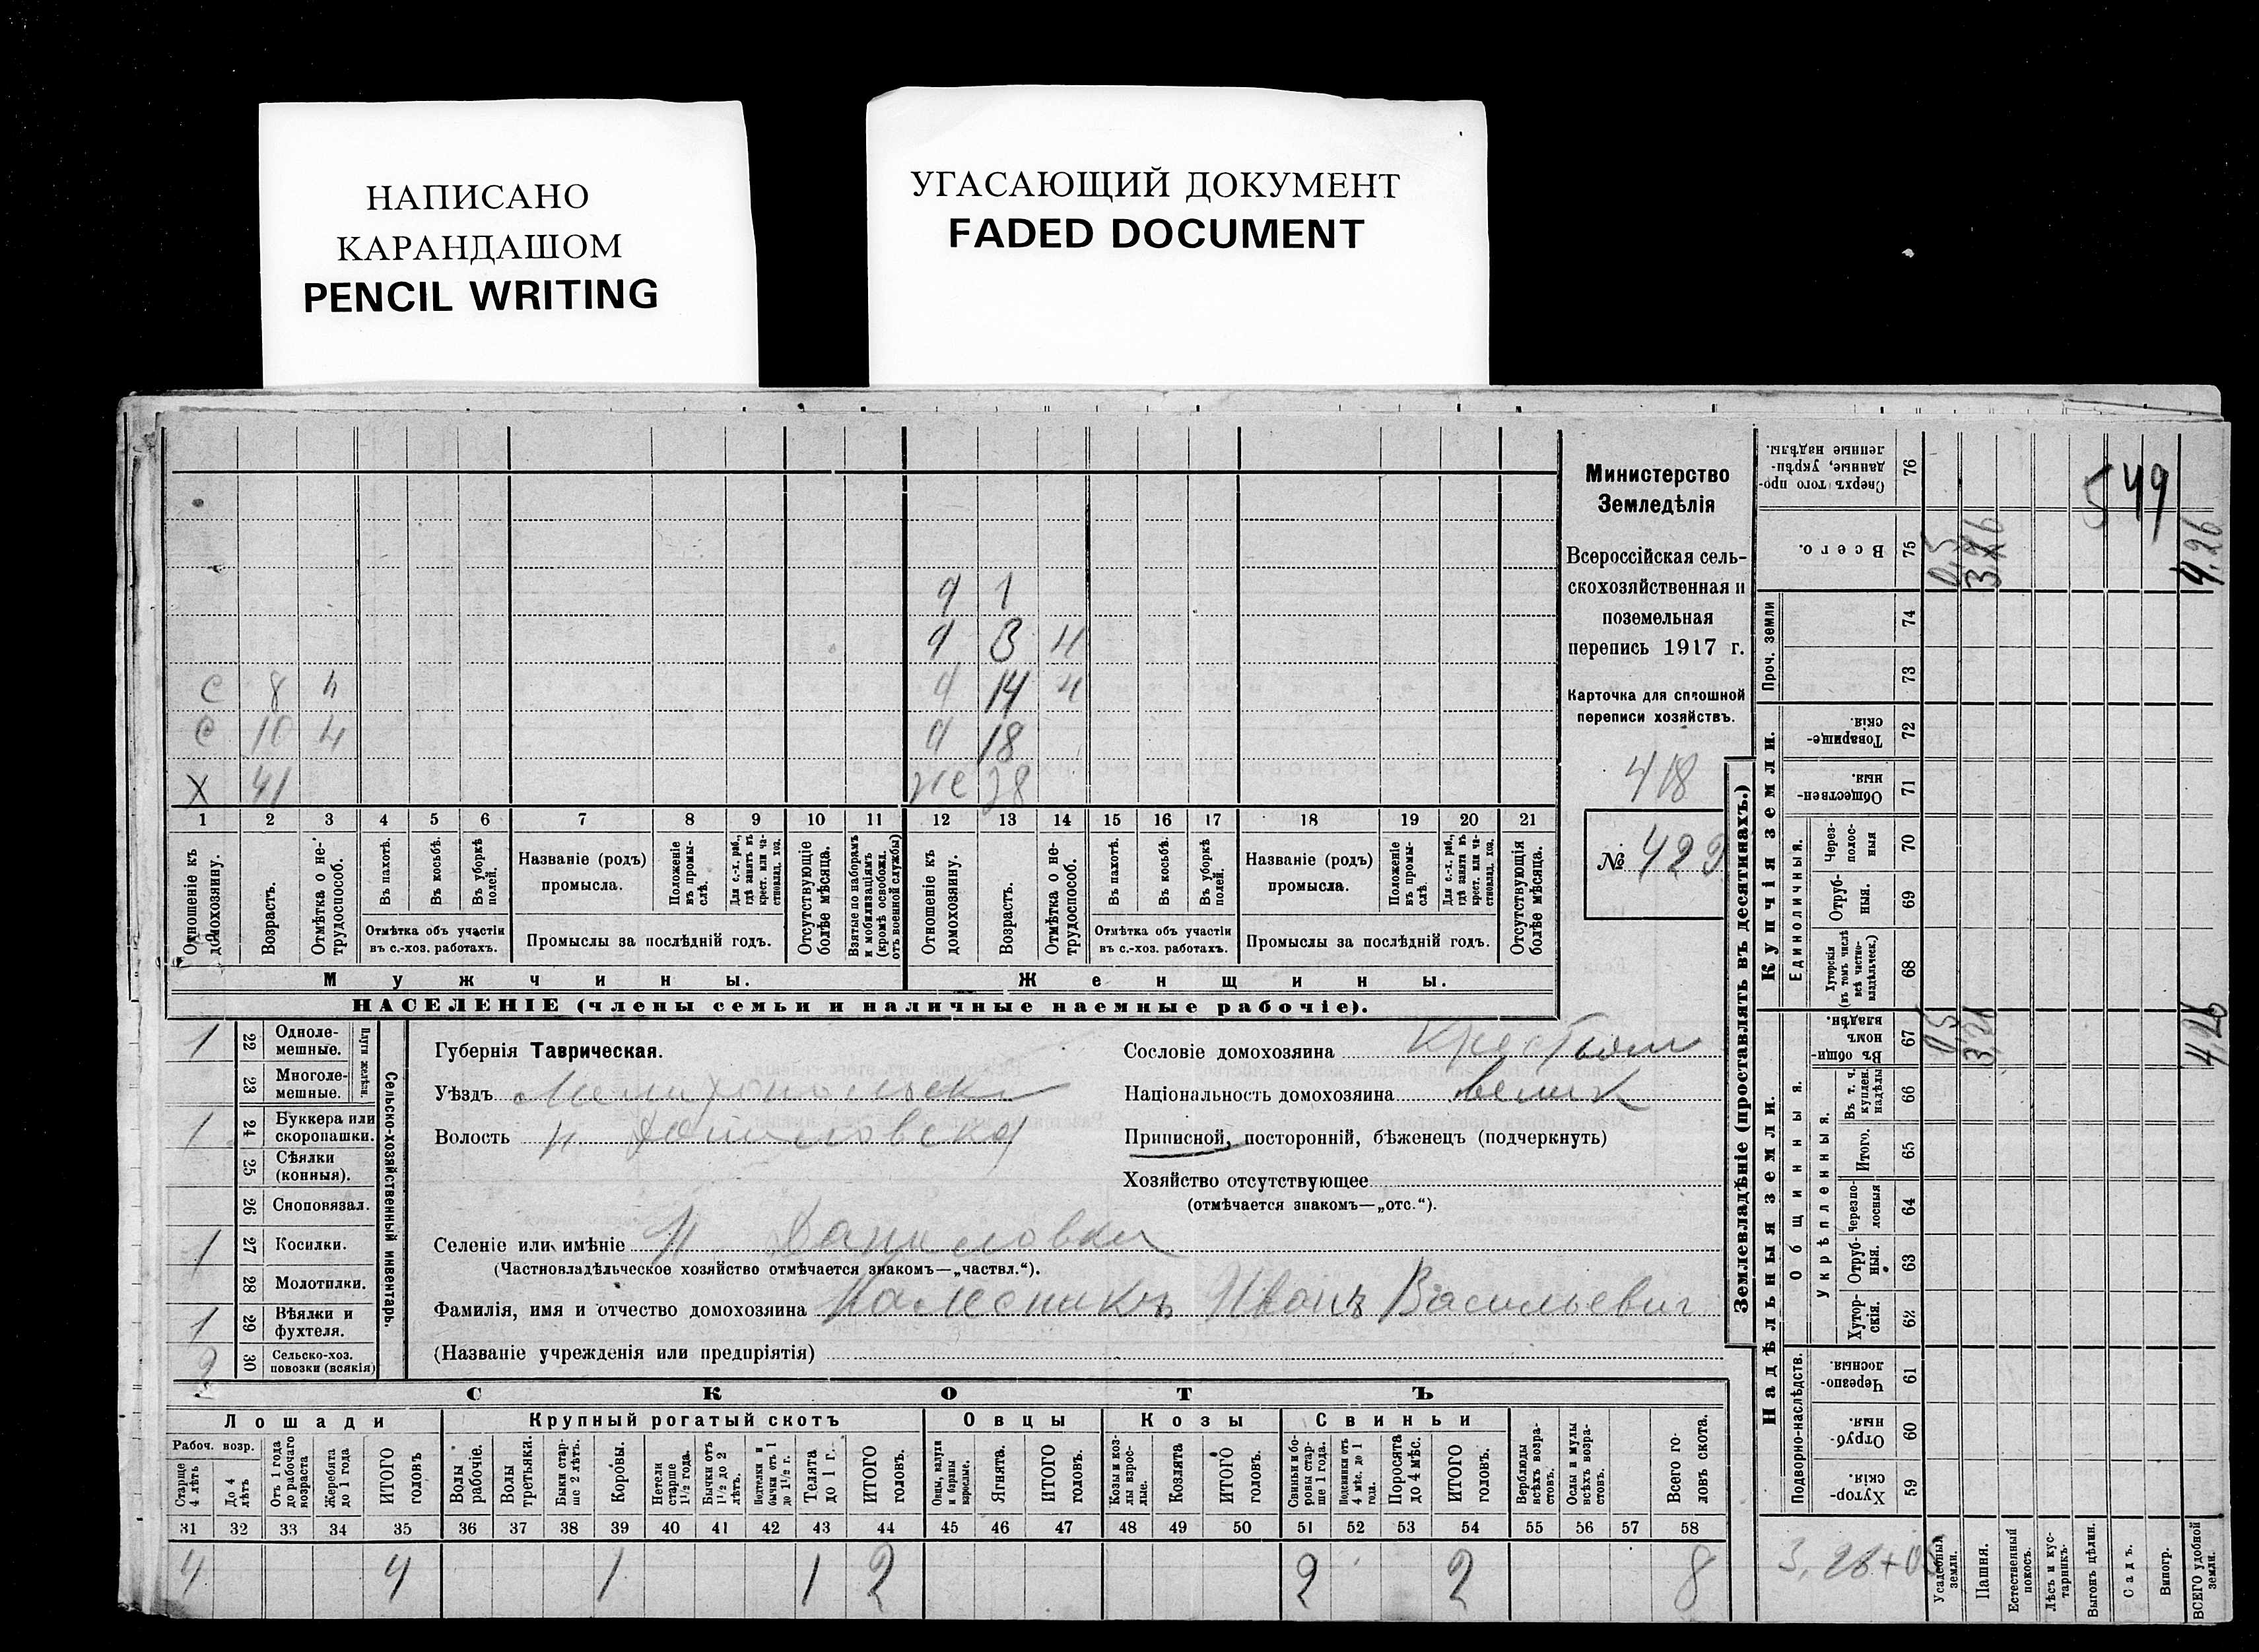 НАПИСАНО
КАРАНДАШОМ
PENCIL WRITING
УГАСАЮЩИЙ ДОКУМЕНТ
FADED DOCUMENT
ч 1
ч 3 н
с 8 н ч 14 н
с 10 н ч 18
х 41 же 38
1 2 3 4 5 6 7 8 9 10 11 12 13 14 15 16 17 18 19 20 21
Отношеніе къ домохозяину.
Возрастъ.
Отмѣтка о не-трудоспособ.
Въ пахотѣ.
Въ косьбѣ.
Въ уборкѣ полей.
Отмѣтка объ участіи
въ с.-хоз. работахъ.
Названіе (родъ)
промысла.
Положеніе въ промы-слѣ.
Для с.-х. раб., гдѣ занятъ въ крест. или ча-стновлад. хоз.
Промыслы за послѣдній годъ.
Отсутствующіе болѣе мѣсяца.
Взятые по наборамъ и мобилизаціямъ (кромѣ освобожд. отъ военной службы)
Отношеніе къ домохозяину.
Возрастъ.
Отмѣтка о не-трудоспособ.
Въ пахотѣ.
Въ косьбѣ.
Въ уборкѣ полей.
Отмѣтка объ участіи
въ с.-хоз. работахъ.
Названіе (родъ)
промысла.
Положеніе въ промы-слѣ.
Для с.-х. раб., гдѣ занята въ крест. или ча-стновлад. хоз.
Промыслы за послѣдній годъ.
Отсутствующія болѣе мѣсяца.
Мужчины. Женщины.
НАСЕЛЕНІЕ (члены семьи и наличные наемные рабочіе).
Министерство
Земледѣлія
Всероссійская сель-
скохозяйственная и
поземельная
перепись 1917 г.
Карточка для сплошной
переписи хозяйствъ.
418
№ 429
Сельско-хозяйственный инвентарь.
Плуги желѣзн.
1 22 Одноле-мешные.
23 Многоле-мешные.
1 24 Буккера или скоропашки.
25 Сѣялки (конныя).
26 Сноповязал.
1 27 Косилки.
28 Молотилки.
1 29 Вѣялки и фухтеля.
2 30 Сельско-хоз. повозки (всякія)
Губернія Таврическая.
Уѣздъ
Волость
Селеніе или имѣніе Н Даниловка
(Частновладѣльческое хозяйство отмѣчается знакомъ—„частвл.“).
Фамилія, имя и отчество домохозяина Калесникъ Иванъ Васильевич
(Названіе учрежденія или предпріятія)
Сословіе домохозяина
Національность домохозяина велик
Приписной, посторонній, бѣженецъ (подчеркнуть)
Хозяйство отсутствующее
(отмѣчается знакомъ—„отс.“).
СКОТЪ
Лошади Крупный рогатый скотъ Овцы Козы Свиньи
Рабоч. возр.
Старше 4 лѣтъ
До 4 лѣтъ
Отъ 1 года до рабочаго возраста
Жеребята до 1 года
ИТОГО головъ
Волы рабочіе.
Волы третьяки.
Быки стар-ше 2 лѣтъ.
Коровы.
Нетели старше 1½ года.
Бычки отъ 1½ до 2 лѣтъ.
Подтелки и бычки отъ 1 до 1½ г.
Телята до 1 г.
ИТОГО головъ.
Овцы, валухи и бараны взрослые.
Ягнята.
ИТОГО головъ.
Козы и коз-лы взрос-лые.
Козлята
ИТОГО головъ.
Свиньи и бо-ровы стар-ше 1 года.
Подсвинки отъ 4 мѣс. до 1 год.
Поросята до 4 мѣс.
ИТОГО головъ.
Верблюды всѣхъ возра-стовъ.
Ослы и мулы всѣхъ возра-стовъ.
Всего го-ловъ скота.
31 32 33 34 35 36 37 38 39 40 41 42 43 44 45 46 47 48 49 50 51 52 53 54 55 56 57 58
4 4 1 1 2 2 2 8
Землевладѣніе (проставлять въ десятинахъ.)
Надѣльныя земли.
Купчія земли.
Проч. земли
Подворно-наслѣдств.
Общинныя.
Укрѣпленныя.
Единоличныя.
Сверхъ того про-данные, укрѣп-ленные надѣлы. 76
Всего. 75 0,5 4,26
74
73
Товарище-скія. 72
Обществен-ныя. 71
Через-полос-ныя 70
Отруб-ныя. 69
Хуторскія (въ томъ числѣ всѣ частно-владѣльческ.) 68
Въ общи-номъ владѣн. 67 0,5 4,26
Въ т. ч. куплен. надѣлы 66
Итого. 65
Черезпо-лосныя 64
Отруб-ныя. 63
Хутор-скія. 62
Черезпо-лосныя. 61
Отруб-ныя. 60
Хутор-скія. 59
549
Усадебныя земли.
Пашня.
Естественный покосъ.
Лѣсъ и кус-тарникъ.
Выгонъ цѣлин.
Садъ.
Виногр.
ВСЕГО удобной земли.